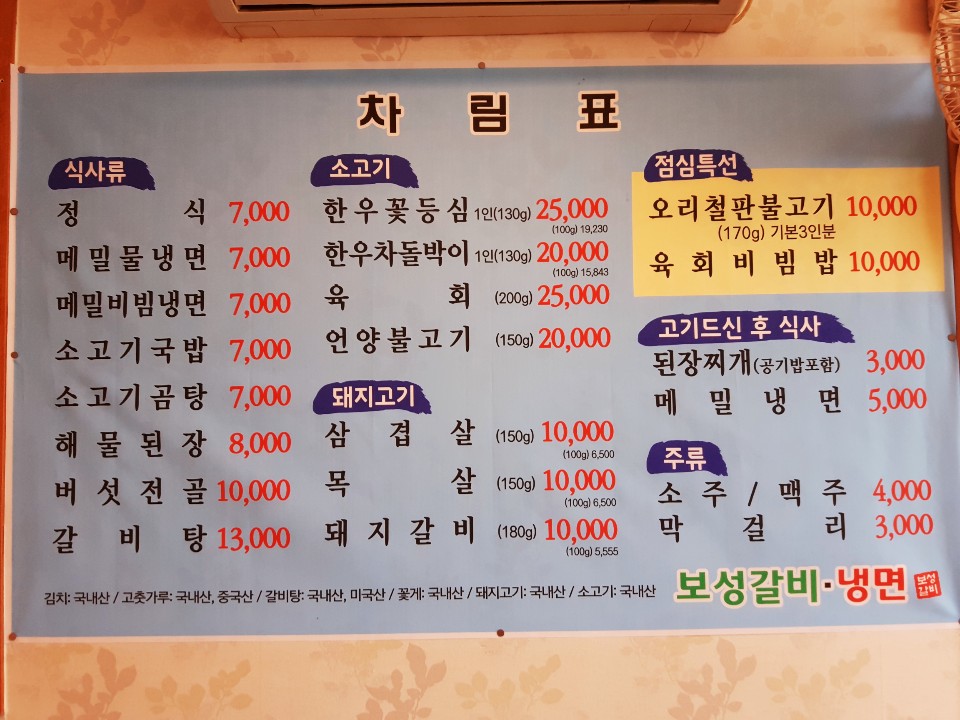 차림표
식사류
정식 7,000
메밀물냉면 7,000
메밀비빔냉면 7,000
소고기국밥 7,000
소고기곰탕 7,000
해물된장 8,000
버섯전골 10,000
갈비탕 13,000
소고기
한우꽃등심 1인(130g) 25,000
(100g) 19,230
한우차돌박이 1인(130g) 20,000
(100g) 15,843
육회 (200g) 25,000
언양불고기 (150g) 20,000
돼지고기
삼겹살 (150g) 10,000
(100g) 6,500
목살 (150g) 10,000
(100g) 6,500
돼지갈비 (180g) 10,000
(100g) 5,555
점심특선
오리철판불고기 10,000
(170g) 기본3인분
육회비빔밥 10,000
고기드신 후 식사
된장찌개(공기밥포함) 3,000
메밀냉면 5,000
주류
소주/맥주 4,000
막걸리 3,000
김치: 국내산 / 고춧가루: 국내산, 중국산 / 갈비탕: 국내산, 미국산 / 꽃게: 국내산 / 돼지고기: 국내산 / 소고기: 국내산
보성갈비·냉면
보성
갈비